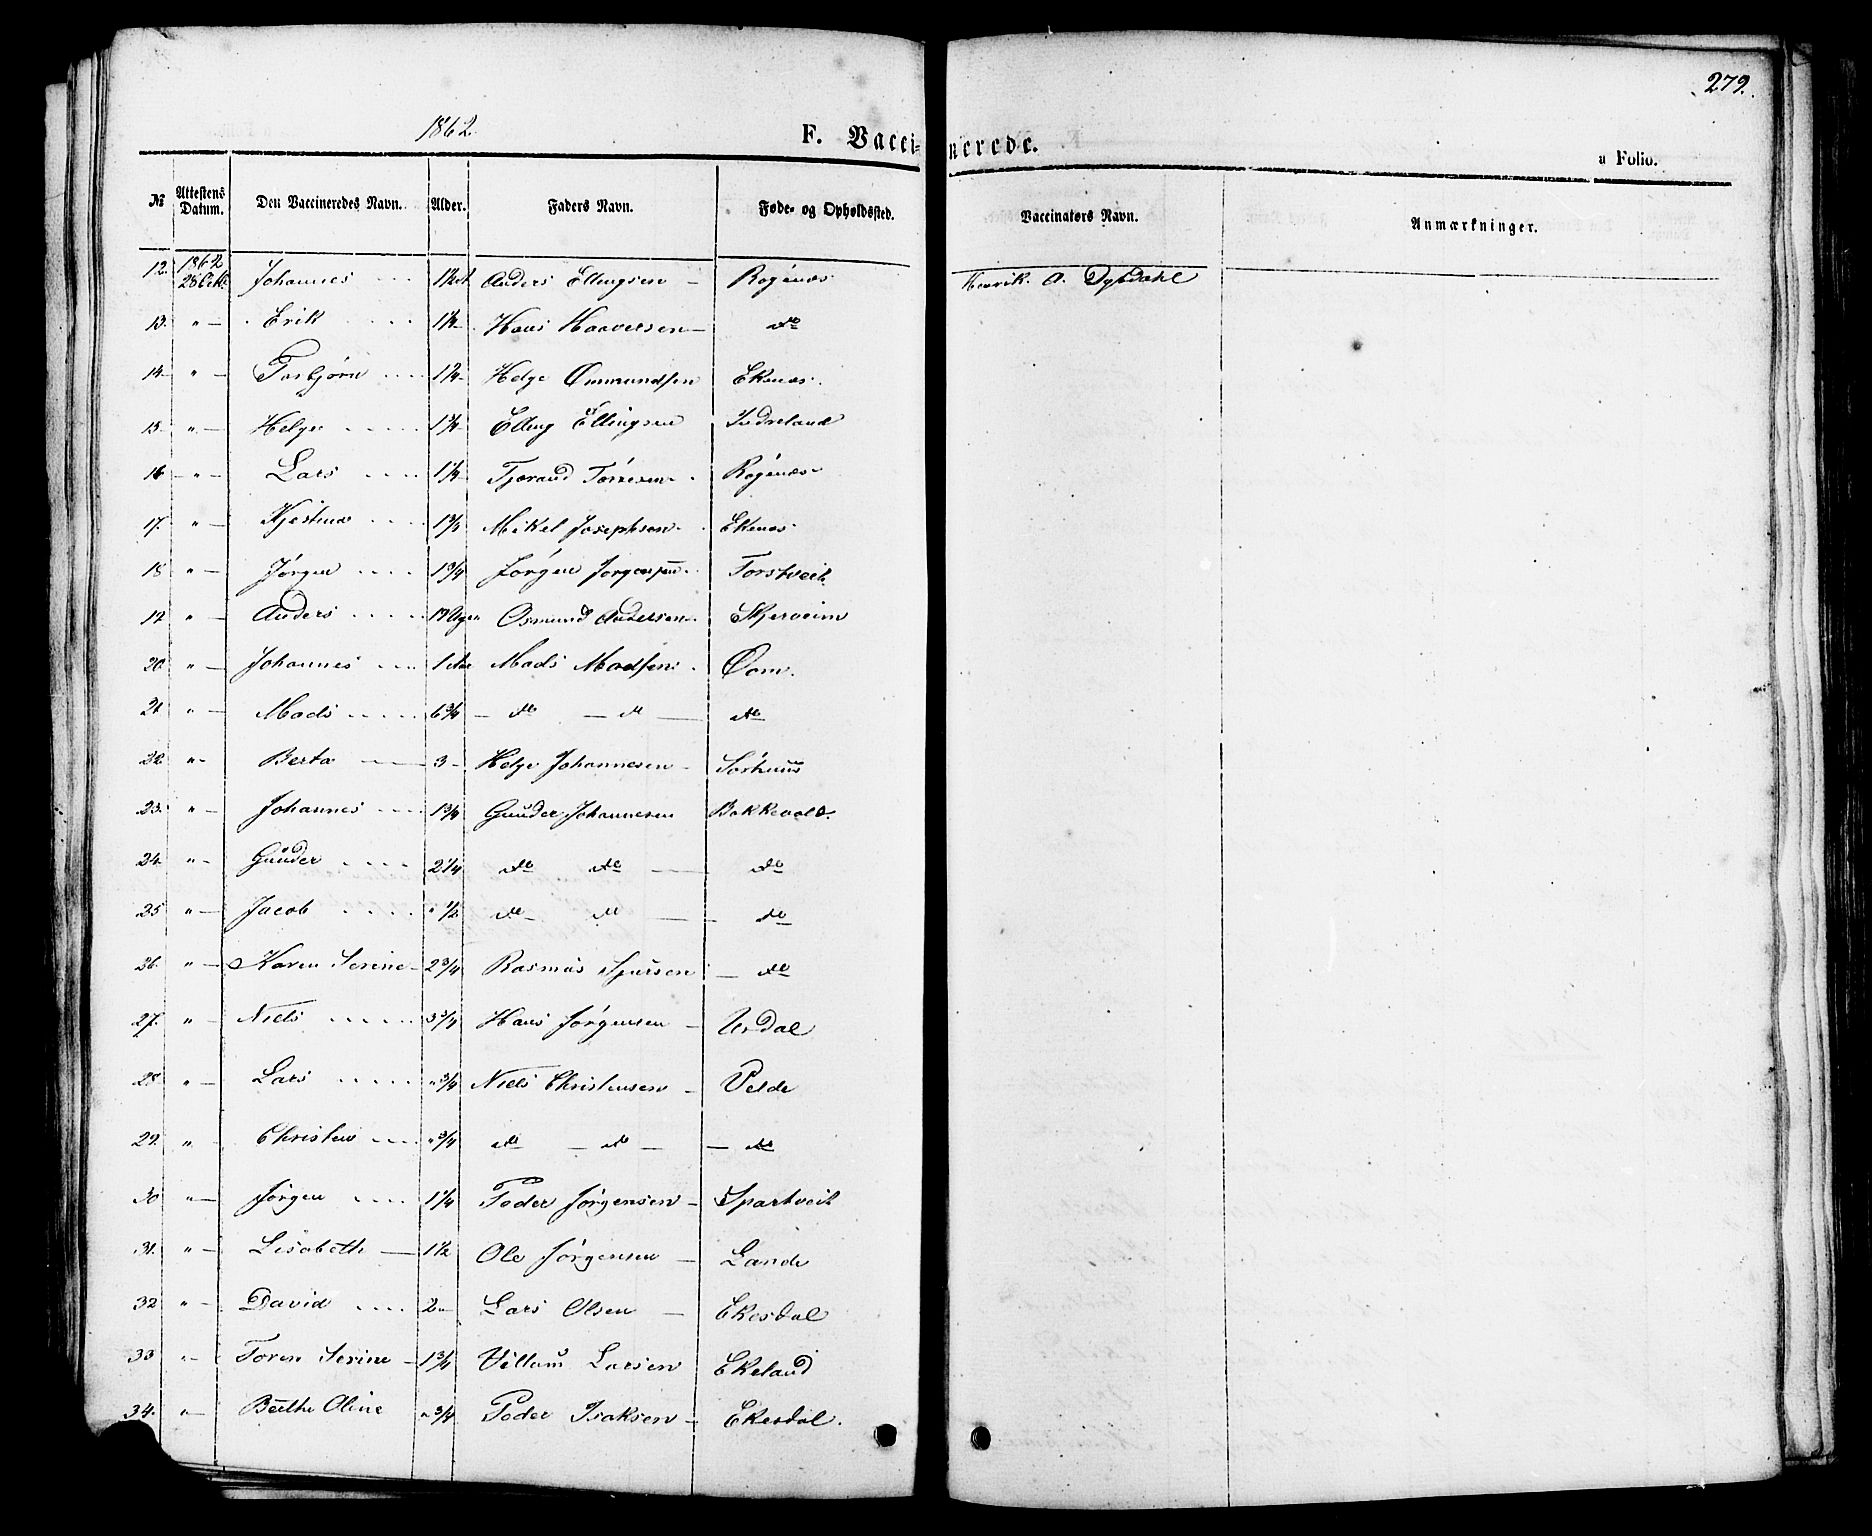 279.
1862
F. Vacci-nerede.
a Folio.
№ Attestens Datum. Den Vaccineredes Navn. Alder. Faders Navn. Føde- og Opholdssted. Vaccinators Navn. Anmærkninger.
12. 1862 Johannes Anders Ellingsen Rogenæs Henrik A. Dybdahl
13. " Erik Hans Haaversen do
14 " Torbjørn Helge Ommundsen Ekenæs.
15 " Helge Elling Ellingsen Indreland
16 " Lars 1¼ Tjerand Tørresen Rogenæs
17. " Kjestine 1¾ Mikel Josephsen Ekenæs
18 " Jørgen 1¾ Jørgen Jørgensen Forstveit
19 " Anders Osmund Andersen Skjerveim
20 " Johannes 1 Mads Madsen Oom.
21 " Mads 6¾ do do do
22 " Berta 3 Helge Johannesen Sørhuus
23. " Johannes 1¾ Gunder Johannesen Bakkevold.
24. " Gunder 2¼ do do do
25 " Jacob " ½ do do do
26. " Karen Serine 2¾ Rasmus do
27. " Niels 3¾ Hans Jørgensen Urdal
28 " Lars " ¾ Niels Christensen Velde
29. " Christen " ¾ do do do
30 " Jørgen 1¼ Peder Jørgensen Spartveit
31. " Lisabeth 1½ Ole Jørgensen Lande
32 " David 2 Lars Olsen Ekesdal
33 " Toren Serine 1¾ Villum Larsen Ekeland
34. " Berthe Oline " ¾ Peder Isaksen Ekesdal.